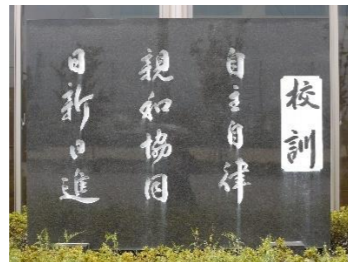 校訓
自主自律
親和協同
日新日進